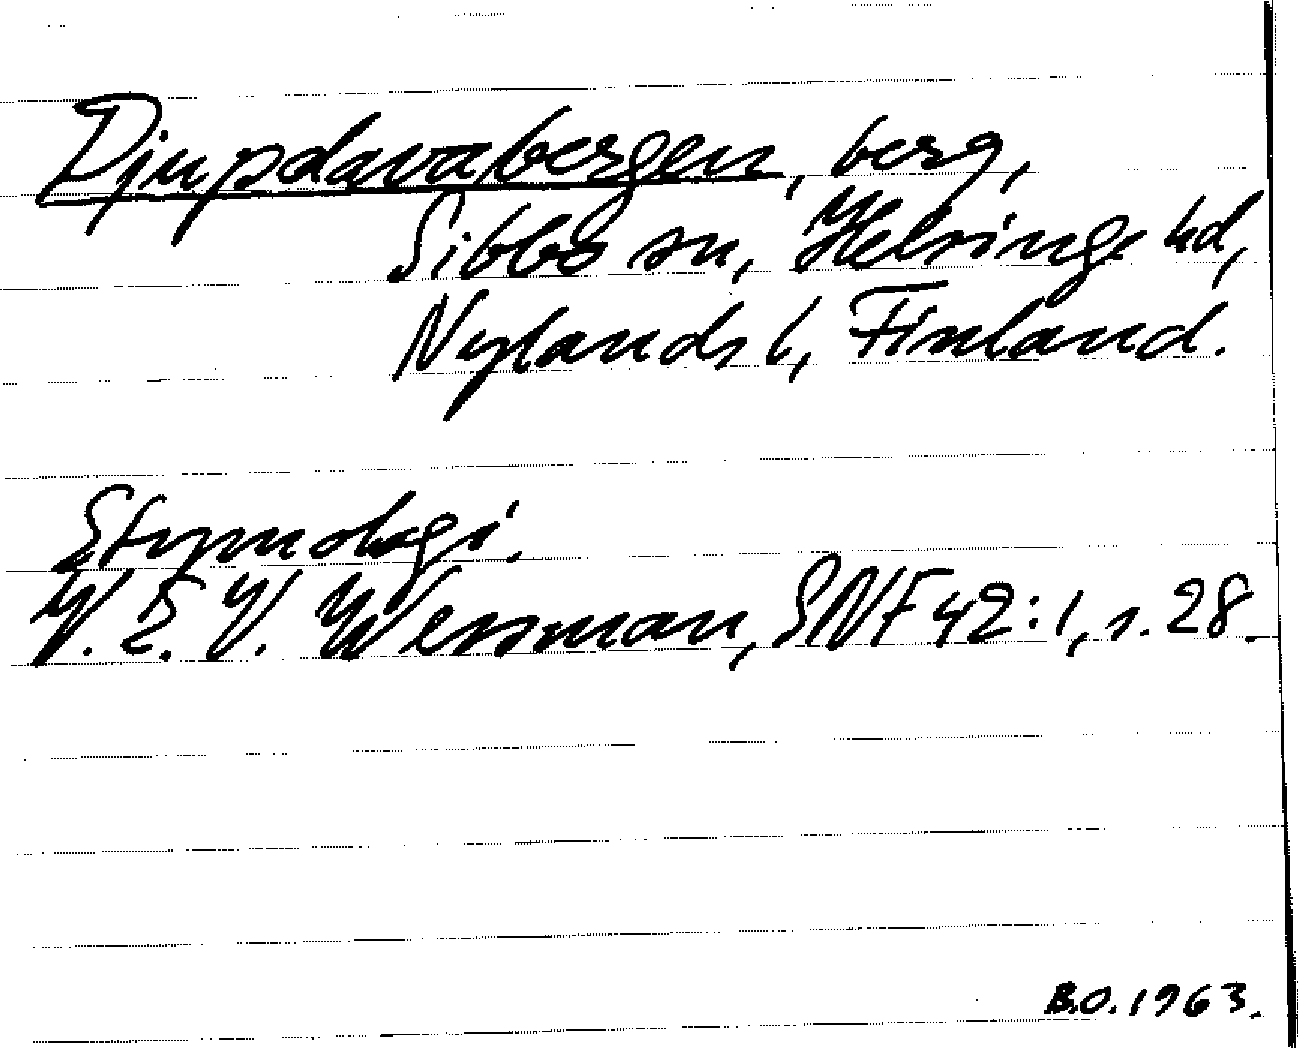 Djupdavabergen, berg,
Sibbo sn, Helsinge hd,
Nylands l, Finland.
Etymologi.
V. E. V. Wessman, SNF 42:1, s. 28.
B.O. 1963.